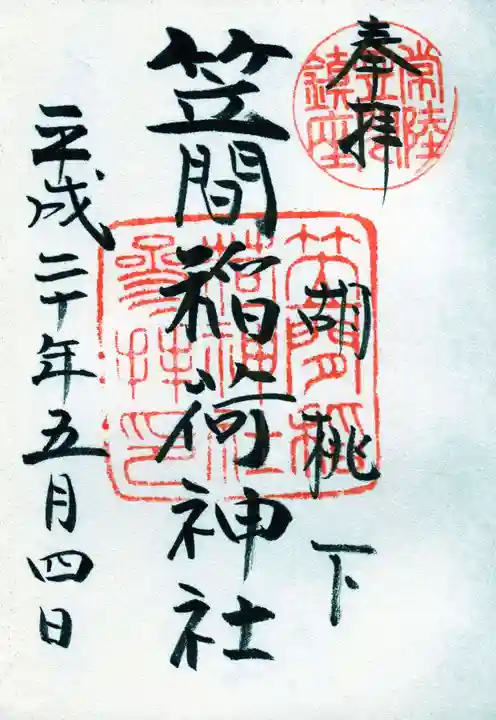 奉拝
常陸
笠間
鎮座
胡桃下
笠間稲荷神社
笠間稲
荷神社
参拝印
平成二十年五月四日